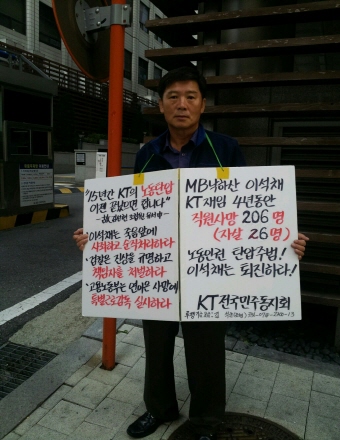 "15년간 KT의 노동탄압
이젠 끝났으면 합니다"
·이석채는 죽음앞에
사죄하고 순직처리하라
·검찰은 진상을 규명하고
책임자를 처벌하라
·고용노동부는 연이은 사망에
특별근로감독 실시하라
MB낙하산 이석채
KT 재임 4년동안
직원사망 206명
(자살 26명)
노동인권 탄압주범!
이석채는 퇴진하라!
KT전국민주동지회